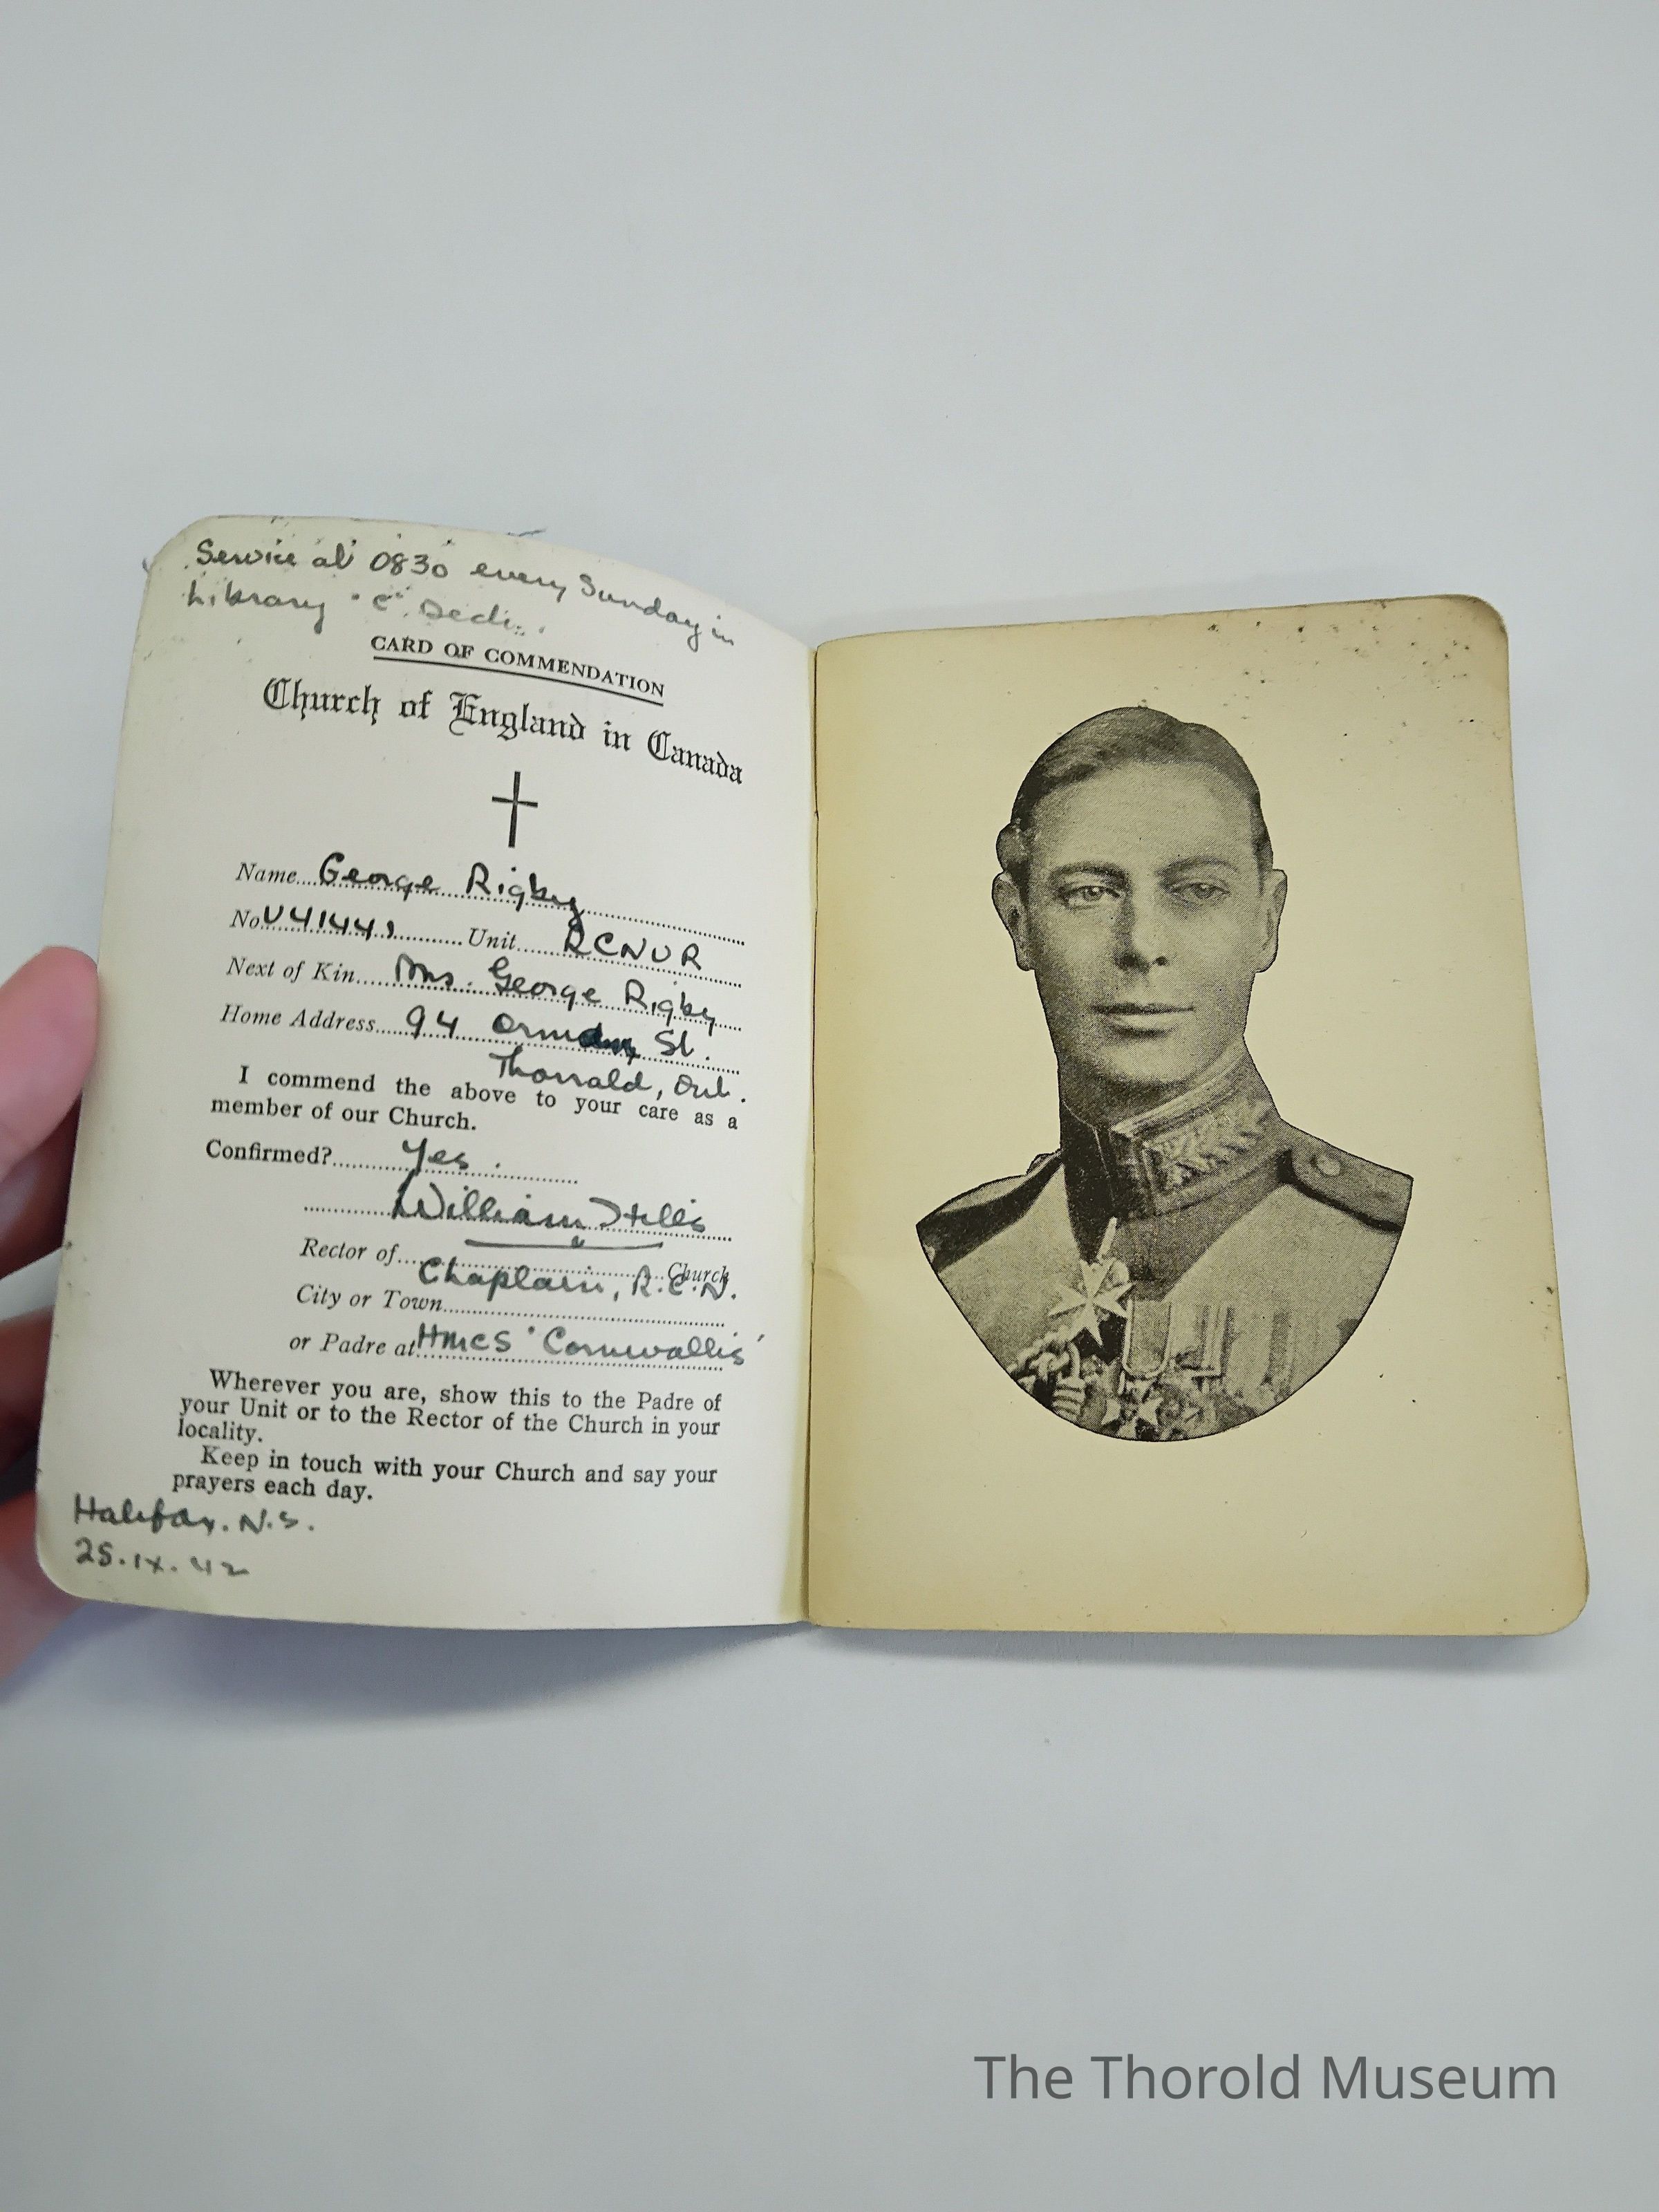 Service at 0830 every Sunday in
Library "C"
CARD OF COMMENDATION
Church of England in Canada
Name George Rigby
No V41441 Unit RCNVR
Next of Kin Mrs. George Rigby
Home Address 94 St.
Thorrald, Ont.
I commend the above to your care as a
member of our Church.
Confirmed? Yes.
William
Rector of Church
Chaplain, R.C.N.
City or Town
or Padre at HMCS "Cornwallis"
Wherever you are, show this to the Padre of
your Unit or to the Rector of the Church in your
locality.
Keep in touch with your Church and say your
prayers each day.
Halifax. N.S.
25.ix.42
The Thorold Museum